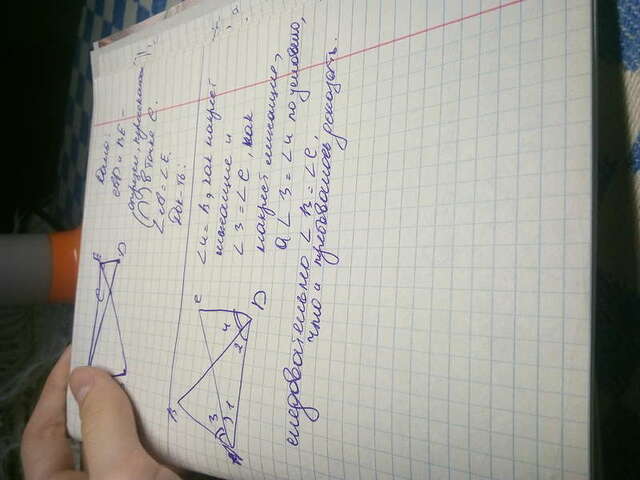 Дано:
и BE -
отрезки,
в точке C.
= ∠E.
Док-ть:
C
D
∠4 = B, как накрест
лежащие и
∠3 = ∠C, как
накрест лежащие,
а ∠3 = ∠4 по условию,
следовательно ∠B = ∠C,
что и требовалось доказать.
B
C
3
4
1
2
A
D